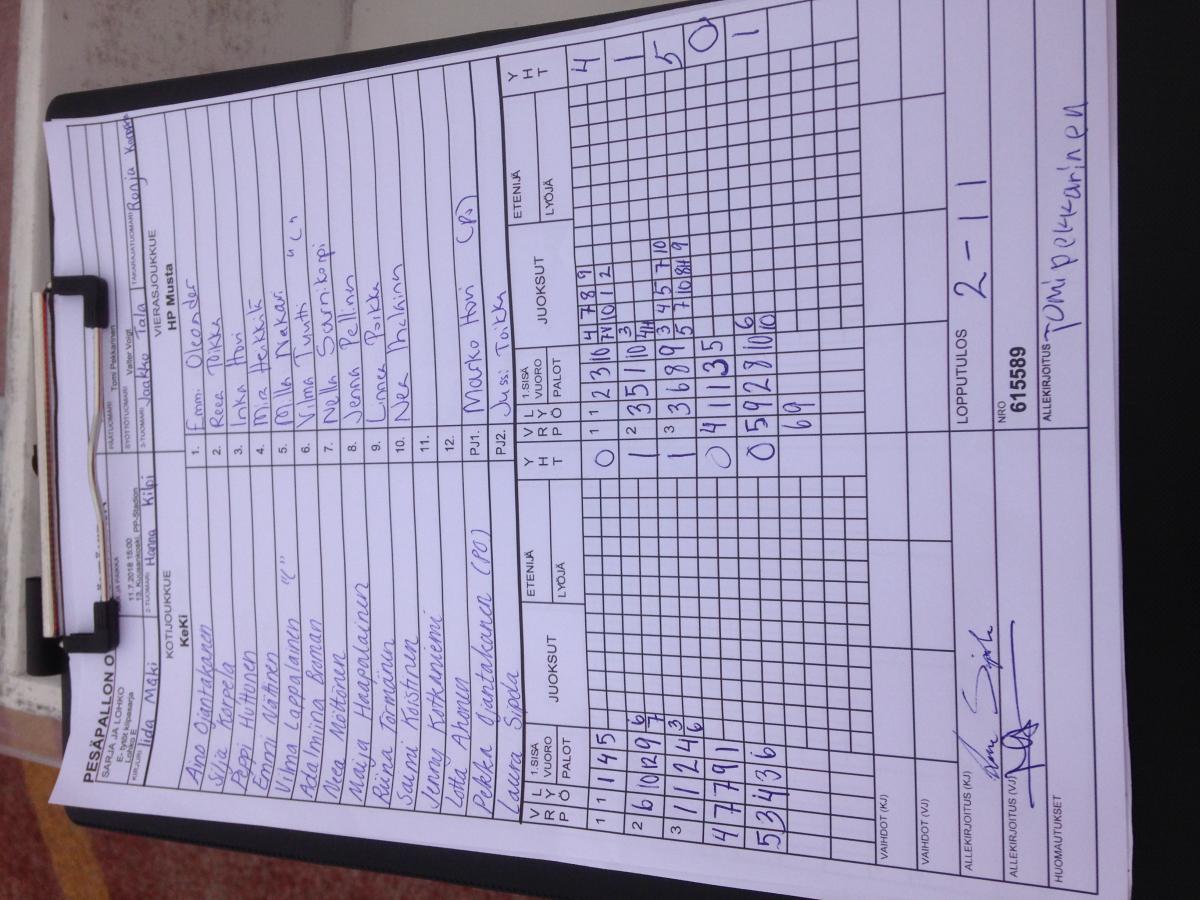 PESÄPALLON O
SARJA JA LOHKO
E- tytöt kilpasarja
Lohko E
11.7.2018 18:00
13. Kuusankoski, PP-Stadion
PÄÄTUOMARI Tomi Pekkarinen
SYÖTTÖTUOMARI Valter Voigt
KIRJURI Iida Mäki
2-TUOMARI Hanna Kilpi
3-TUOMARI Jaakko Tala
TAKARAJATUOMARI Ronja
KOTIJOUKKUE
KeKi
VIERASJOUKKUE
HP Musta
Aino Ojantakanen
Silja Karpela
Peppi Huttunen
Emmi Nättinen
Vilma Lappalainen "C"
Ada Miina Boman
Neea Möttönen
Maija Haapalainen
Riina Tormänen
Saimi Koistinen
Jenny Kotkaniemi
Lotta Ahonen
Pekka Ojantakanen (PO)
Laura Sipola
1. Emmi Oleander
2. Reea Poikka
3. Inka Hovi
4. Mira Heikkilä
5. Milla Nakari
6. Vilma Tuuti "C"
7. Nella Saarnikorpi
8. Jenna Pellinen
9. Linnea Poikka
10. Nea
11.
12.
PJ1. Marko Hovi (PJ)
PJ2. Jussi Poikka
V R P L Y Ö 1.SISÄ VUORO PALOT JUOKSUT ETENIJÄ LYÖJÄ Y H T
1 1 1 4 5 0
2 6 10 12 9 6 7 1
3 1 1 2 4 3 6 1
4 7 7 9 1 0
5 3 4 3 6 0
V R P L Y Ö 1.SISÄ VUORO PALOT JUOKSUT ETENIJÄ LYÖJÄ Y H T
1 1 2 3 10 4 7 8 9 4
2 3 5 1 10 3 1
3 3 6 8 9 3 4 5 7 10 5
4 1 1 3 5 0
5 9 2 8 10 6 1
6 9
VAIHDOT (KJ)
VAIHDOT (VJ)
ALLEKIRJOITUS (KJ)
ALLEKIRJOITUS (VJ)
HUOMAUTUKSET
LOPPUTULOS 2 - 11
NRO
615589
ALLEKIRJOITUS Tomi Pekkarinen